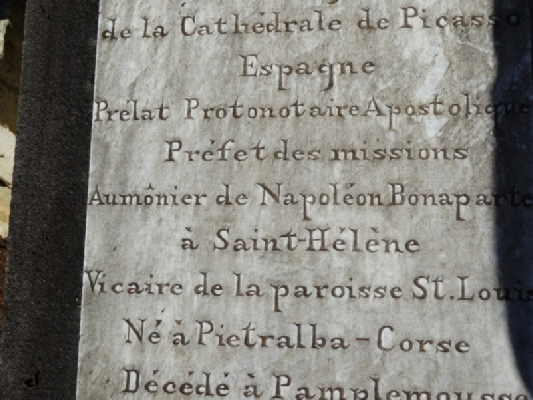 de la Cathédrale de Picasso
Espagne
Prélat Protonotaire Apostolique
Préfet des missions
Aumônier de Napoléon Bonaparte
à Saint-Hélène
Vicaire de la paroisse St. Louis
Né à Pietralba - Corse
Décédé à Pamplemousse